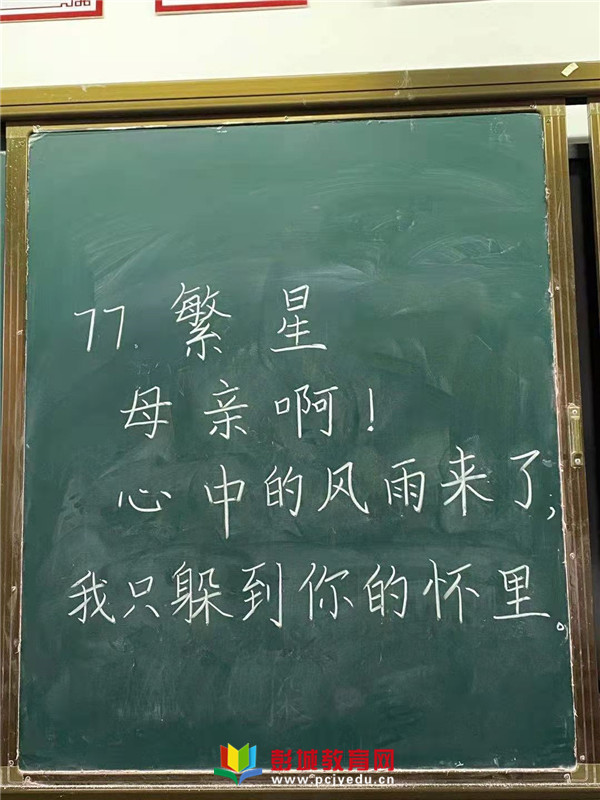 77.繁星
母亲啊！
心中的风雨来了;
我只躲到你的怀里。
彭城教育网
www.pcjyedu.cn